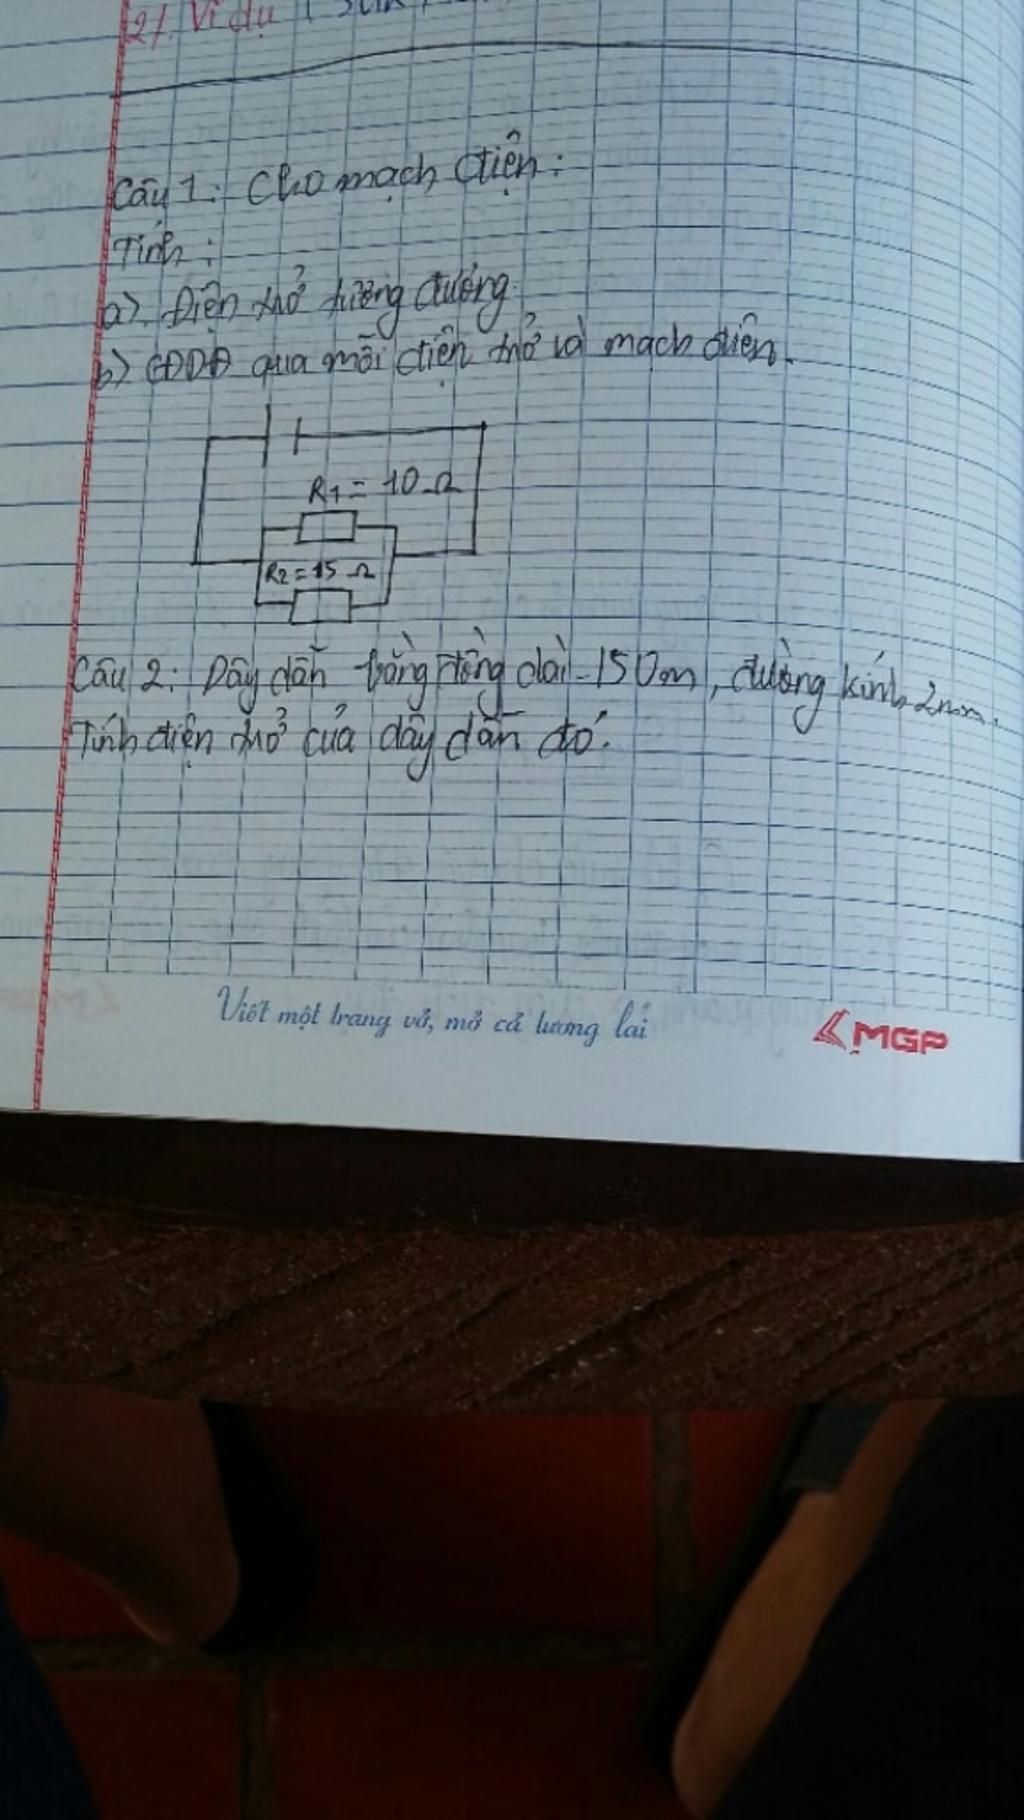 2/. Ví dụ
Câu 1: Cho mạch điện:
Tính:
a). Điện trở tương đương
b) CĐDĐ qua mỗi điện trở và mạch điện.
R1 = 10 Ω
R2 = 15 Ω
Câu 2: Dây dẫn bằng đồng dài 150m, đường kính 2mm.
Tính điện trở của dây dẫn đó.
Viết một trang vở, mở cả tương lai
MGP